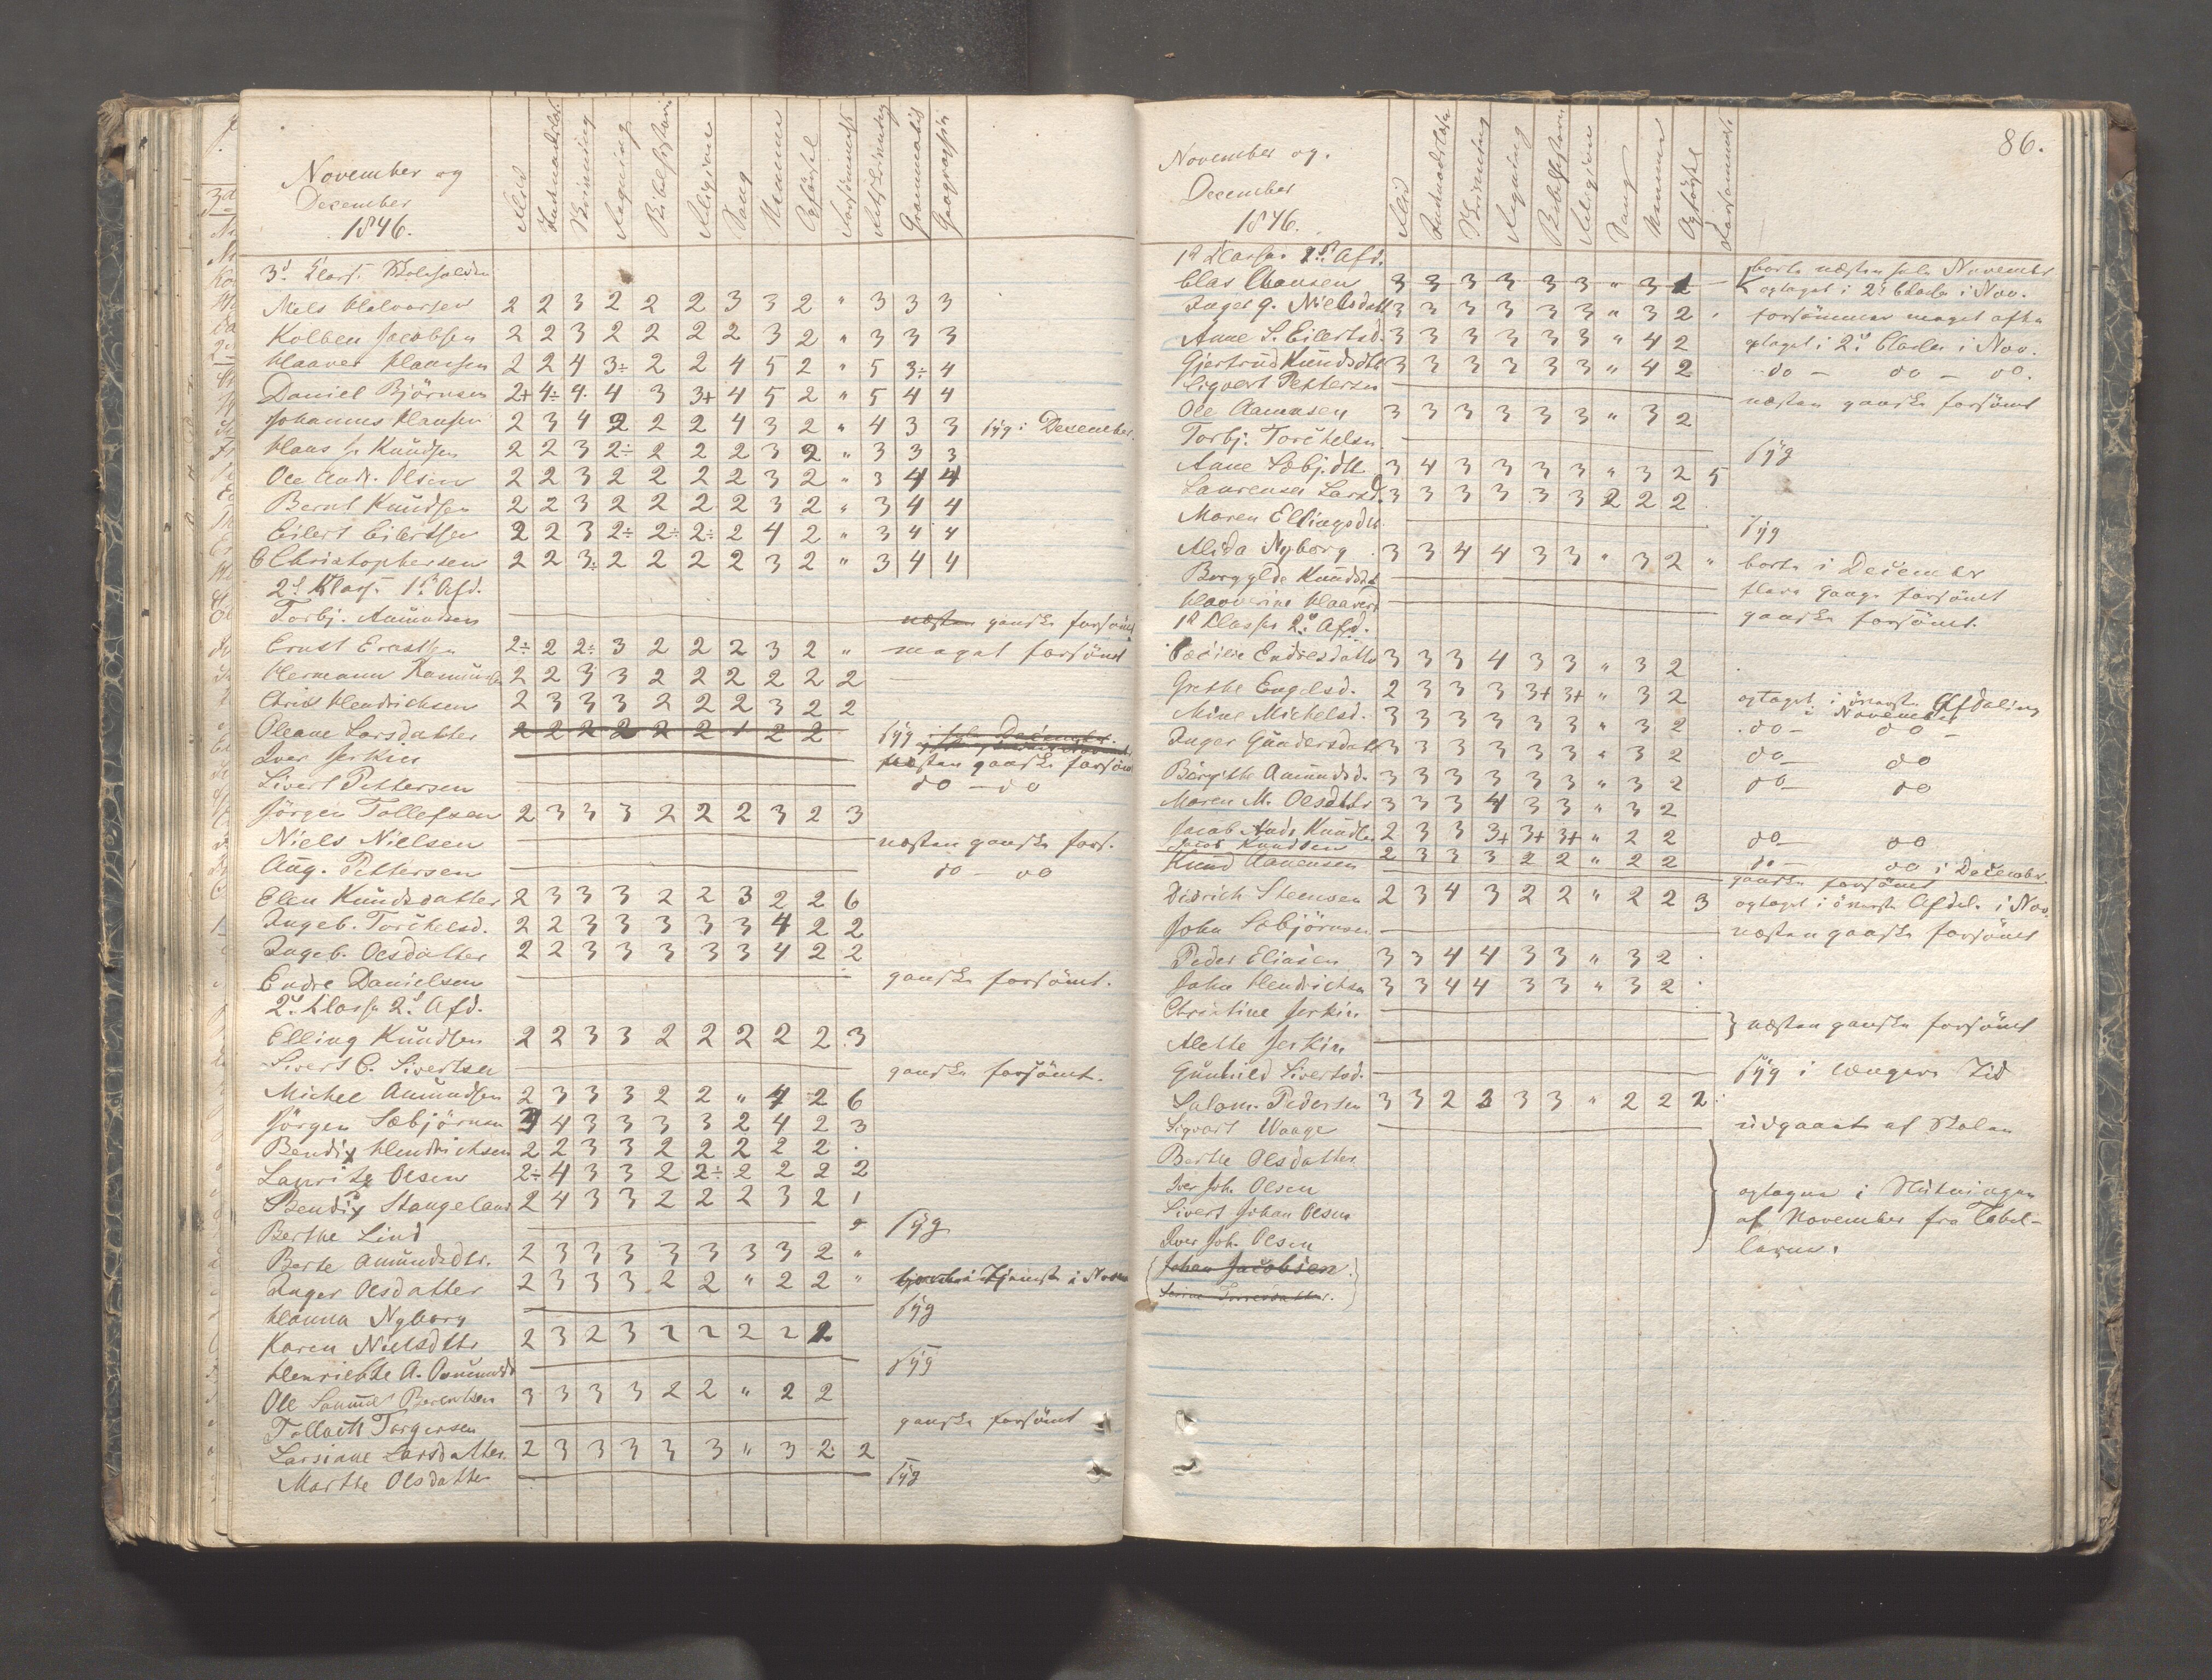 November og
December
1846.
Flid
Indenadslæs.
Skrivning
Regning
Bibelhistorie
Religion
Sang
Evner
Opførsel
Forsømmelse
Retskrivning
Grammatik
Geographie
3d Klasse
Niels Halvorsen 2 2 3 2 2 2 3 3 2 " 3 3 3
Kolben Jacobsen 2 2 3 2 2 2 2 3 2 " 3 3 3
Haaver Haaversen 2 2 4 3÷ 2 2 4 5 2 " 5 3÷ 4
Daniel Björnsen 2+ 4÷ 4 4 3 3+ 4 5 2 " 5 4 4
Johannes Hansen 2 3 4 2 2 2 4 3 2 " 4 3 3 syg i December.
Hans Knudsen 2 2 3 2÷ 2 2 2 3 2 " 3 3 3
Ole Andr. Olsen 2 2 3 2 2 2 2 3 2 " 3 4 4
Bernt Knudsen 2 2 3 2 2 2 2 3 2 " 3 4 4
Eilert Eilertsen 2 2 3 2÷ 2÷ 2÷ 2 4 2 " 3 4 4
C Christophersen 2 2 3 2 2 2 2 3 2 " 3 4 4
2d Klasse 1ste Afd.
Torbj. Amundsen næsten ganske forsömt
Ernst Ernstsen 2÷ 2 2÷ 3 2 2 2 3 2 " meget forsömt
Hermann 2 2 3 3 2 2 2 2 2 2
Christ Hendrichsen 2 3 3 3 2 2 2 3 2 2
Oleane Larsdatter 2 2 2 2 2 2 1 2 2 syg i hele December.
Iver Jerkin næsten ganske forsömt
Sivert Pettersen do - do
Jörgen Tollefsen 2 3 3 3 2 2 2 3 2 3
Niels Nielsen næsten ganske fors.
Aug. Pettersen do - do
Elen Knudsdatter 2 3 3 3 2 2 3 2 2 6
Ingeb. Torkelsd. 2 2 3 3 3 3 3 4 2 2
Ingeb. Olsdatter 2 2 3 3 3 3 3 4 2 2
Endre Danielsen ganske forsömt.
2d Classe 2d Afd.
Elling Knudsen 2 2 3 3 2 2 2 2 2 3
Sivert C. Sivertsen ganske forsömt.
Michel Amundsen 2 3 3 3 2 2 " 4 2 6
Jörgen Sæbjörnsen 3 4 3 3 3 3 2 4 2 3
Bendix Hendrichsen 2 2 3 3 2 2 2 2 2 .
Lauritz Olsen 2÷ 4 3 3 2 2÷ 2 2 2 2
Bendix Stangeland 2 4 3 3 2 2 2 3 2 1
Berthe Lind syg
Berte Amundsdtr. 2 3 3 3 3 3 3 3 2 "
Inger Olsdatter 2 3 3 3 2 2 " 2 2 "
Hanna Nyborg syg
Karen Nielsdtr 2 3 2 3 2 2 2 2 2
Henriette A. Amundsd syg
Ole Samuel Berentsen 3 3 3 3 2 2 " 2 2
Tollack Torgersen ganske forsömt
Larsiane Larsdatter 2 3 3 3 3 3 " 3 2 2
Marthe Olsdatter syg
86.
November og.
December
1846.
Flid
Indenadslæsn
Skrivning
Regning
Bibelhistorie
Religion
Sang
Evner
Opförsel
Forsömmels.
1ste Classe 1ste Afd.
Clas Clausen 3 3 3 3 3 3 " 3 1 borte næsten hele November
optaget i 2d Classe i Nov.
Inger G. Nielsdatt 3 3 3 3 3 3 " 3 2 " forsömmer meget ofte
Anne S. Eilertsd. 3 3 3 3 3 3 " 4 2 optaget i 2d Classe i Nov.
Gjertrud Knudsdtr 3 3 3 3 3 3 " 4 2 do - do - do.
Sigvert Pettersen næsten ganske forsömt
Ole Aamnsen 3 3 3 3 3 3 " 3 2
Torbj. Torkelsen syg
Anne Sæbj.dtt 3 4 3 3 3 3 " 3 2 5
Laurense Larsd. 3 3 3 3 3 3 2 2 2
Maren Ellingsdtr syg
Alida Nyborg 3 3 4 4 3 3 " 3 2 " borte i December
Borgylde Knudsdt flere Gange forsömt
Haaverine Haavers ganske forsömt.
1ste Classe 2d Afd.
Cecilie Endresdatter 3 3 3 4 3 3 " 3 2
Grethe Engelsd. 2 3 3 3 3+ 3+ " 3 2 optaget i överste Afdeling
i November
Mine Michelsd. 3 3 3 3 3 3 " 3 2 do - do -
Inger Gundersdatt 3 3 3 3 3 3 " 3 2 do - do
Birgithe Amundsd. 3 3 3 3 3 3 " 3 2 do - do
Maren M. Olsdttr 3 3 3 4 3 3 " 3 2
Jacob Ands Knudsen 2 3 3 3+ 3+ 3+ " 2 2 do - do
Jacob Knudsen 2 3 3 3 2 2 " 2 2 do - do i December
Knud Aanensen ganske forsömt
Didrich Steensen 2 3 4 3 2 2 " 2 2 3 optaget i överste Afdel. i Nov.
John Sæbjörnsen næsten ganske forsömt
Peder Eliasen 3 3 4 4 3 3 " 3 2 .
John Hendrichsen 3 3 4 4 3 3 " 3 2 .
Christine Jerkin
Alette Jerkin } næsten ganske forsömt
Gunhild Sivertsd. syg i længere Tid
Salom. Pedersen 3 3 2 3 3 3 " 2 2 2
Sigvart Waage udgaaet af Skolen
Berthe Olsdatter
Iver Joh. Olsen
Sivert Johan Olsen
Iver Joh. Olsen
optagne i Slutningen
af November fra Tabel-
lærer.
(Johan Jacobsen.